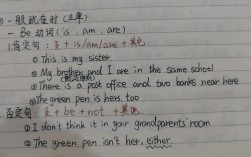 一般现在时(三单)
- Be 动词(is, am, are)
1.肯定句: 主 + is/am/are + 其他
① This is my sister.
② My brother and I are in the same school
③ There is a post office and two banks near here
④ The green pen is hers, too.
否定句: 主 + be + not + 其他
① I don't think it in your grandparents' room
② The green pen isn't her, either.